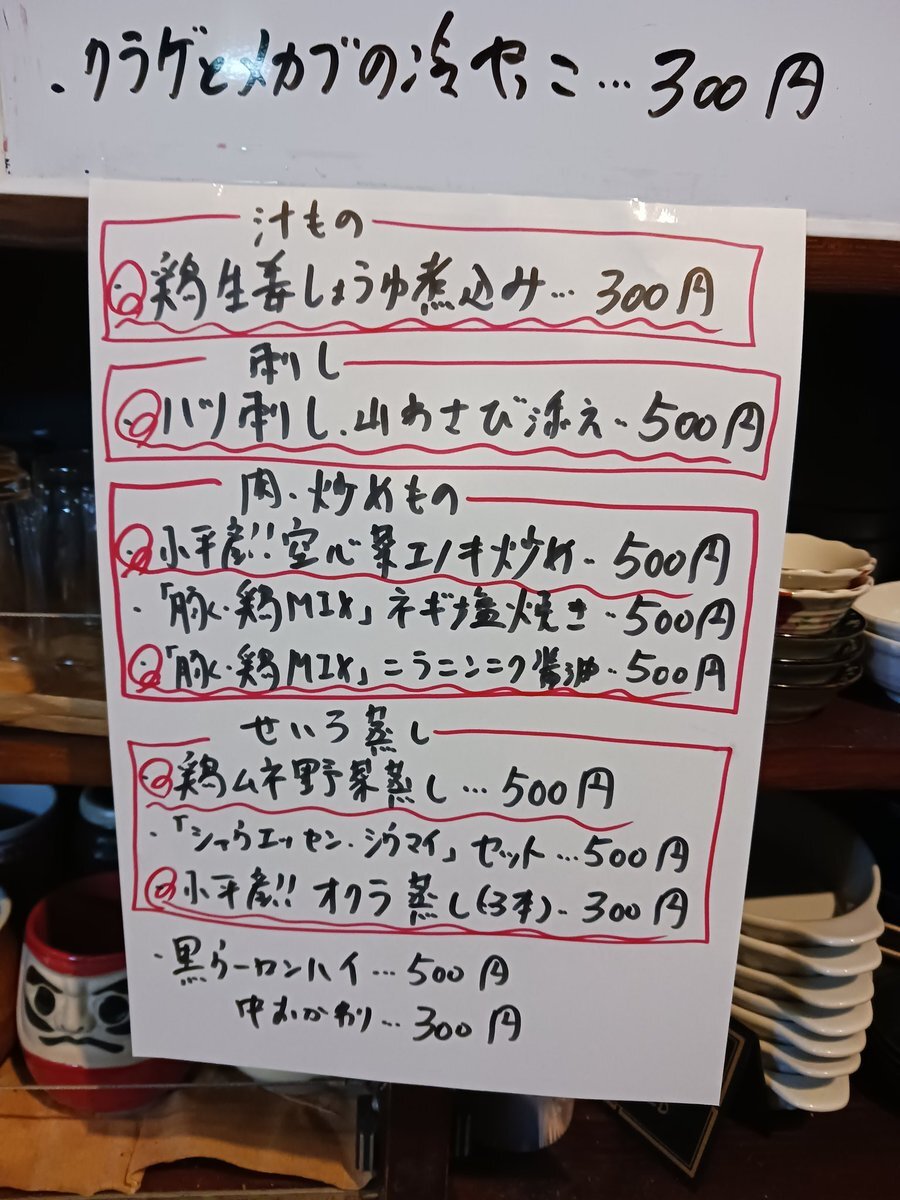 ・クラゲとメカブの冷やっこ…300円
汁もの
・鶏生姜しょうゆ煮込み…300円
刺し
・ハツ刺し、山わさび添え…500円
肉・炒めもの
・小平産!!空心菜エノキ炒め…500円
・「豚・鶏MIX」ネギ塩焼き…500円
・「豚・鶏MIX」ニラニンニク醤油…500円
せいろ蒸し
・鶏ムネ野菜蒸し…500円
・「シャウエッセン・シウマイ」セット…500円
・小平産!!オクラ蒸し(3本)…300円
・黒ウーロンハイ…500円
中おかわり…300円